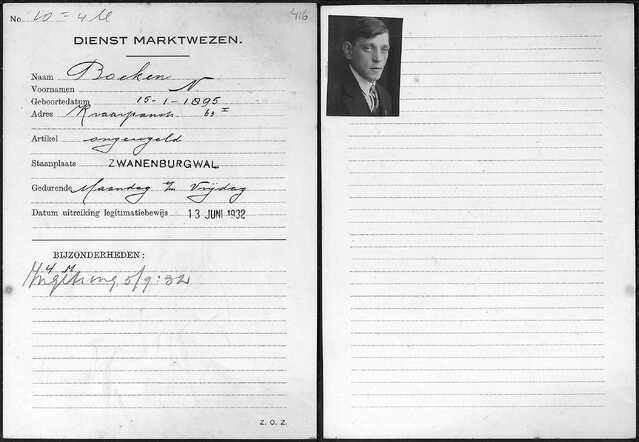 No. 10 = 4 M 416
DIENST MARKTWEZEN.
Naam Boeken
Voornamen N
Geboortedatum 15-1-1895
Adres 63 I
Artikel ongeregeld
Staanplaats ZWANENBURGWAL
Gedurende Maandag t/m Vrijdag
Datum uitreiking legitimatiebewijs 13 JUNI 1932
BIJZONDERHEDEN:
5/9:32
Z. O. Z.